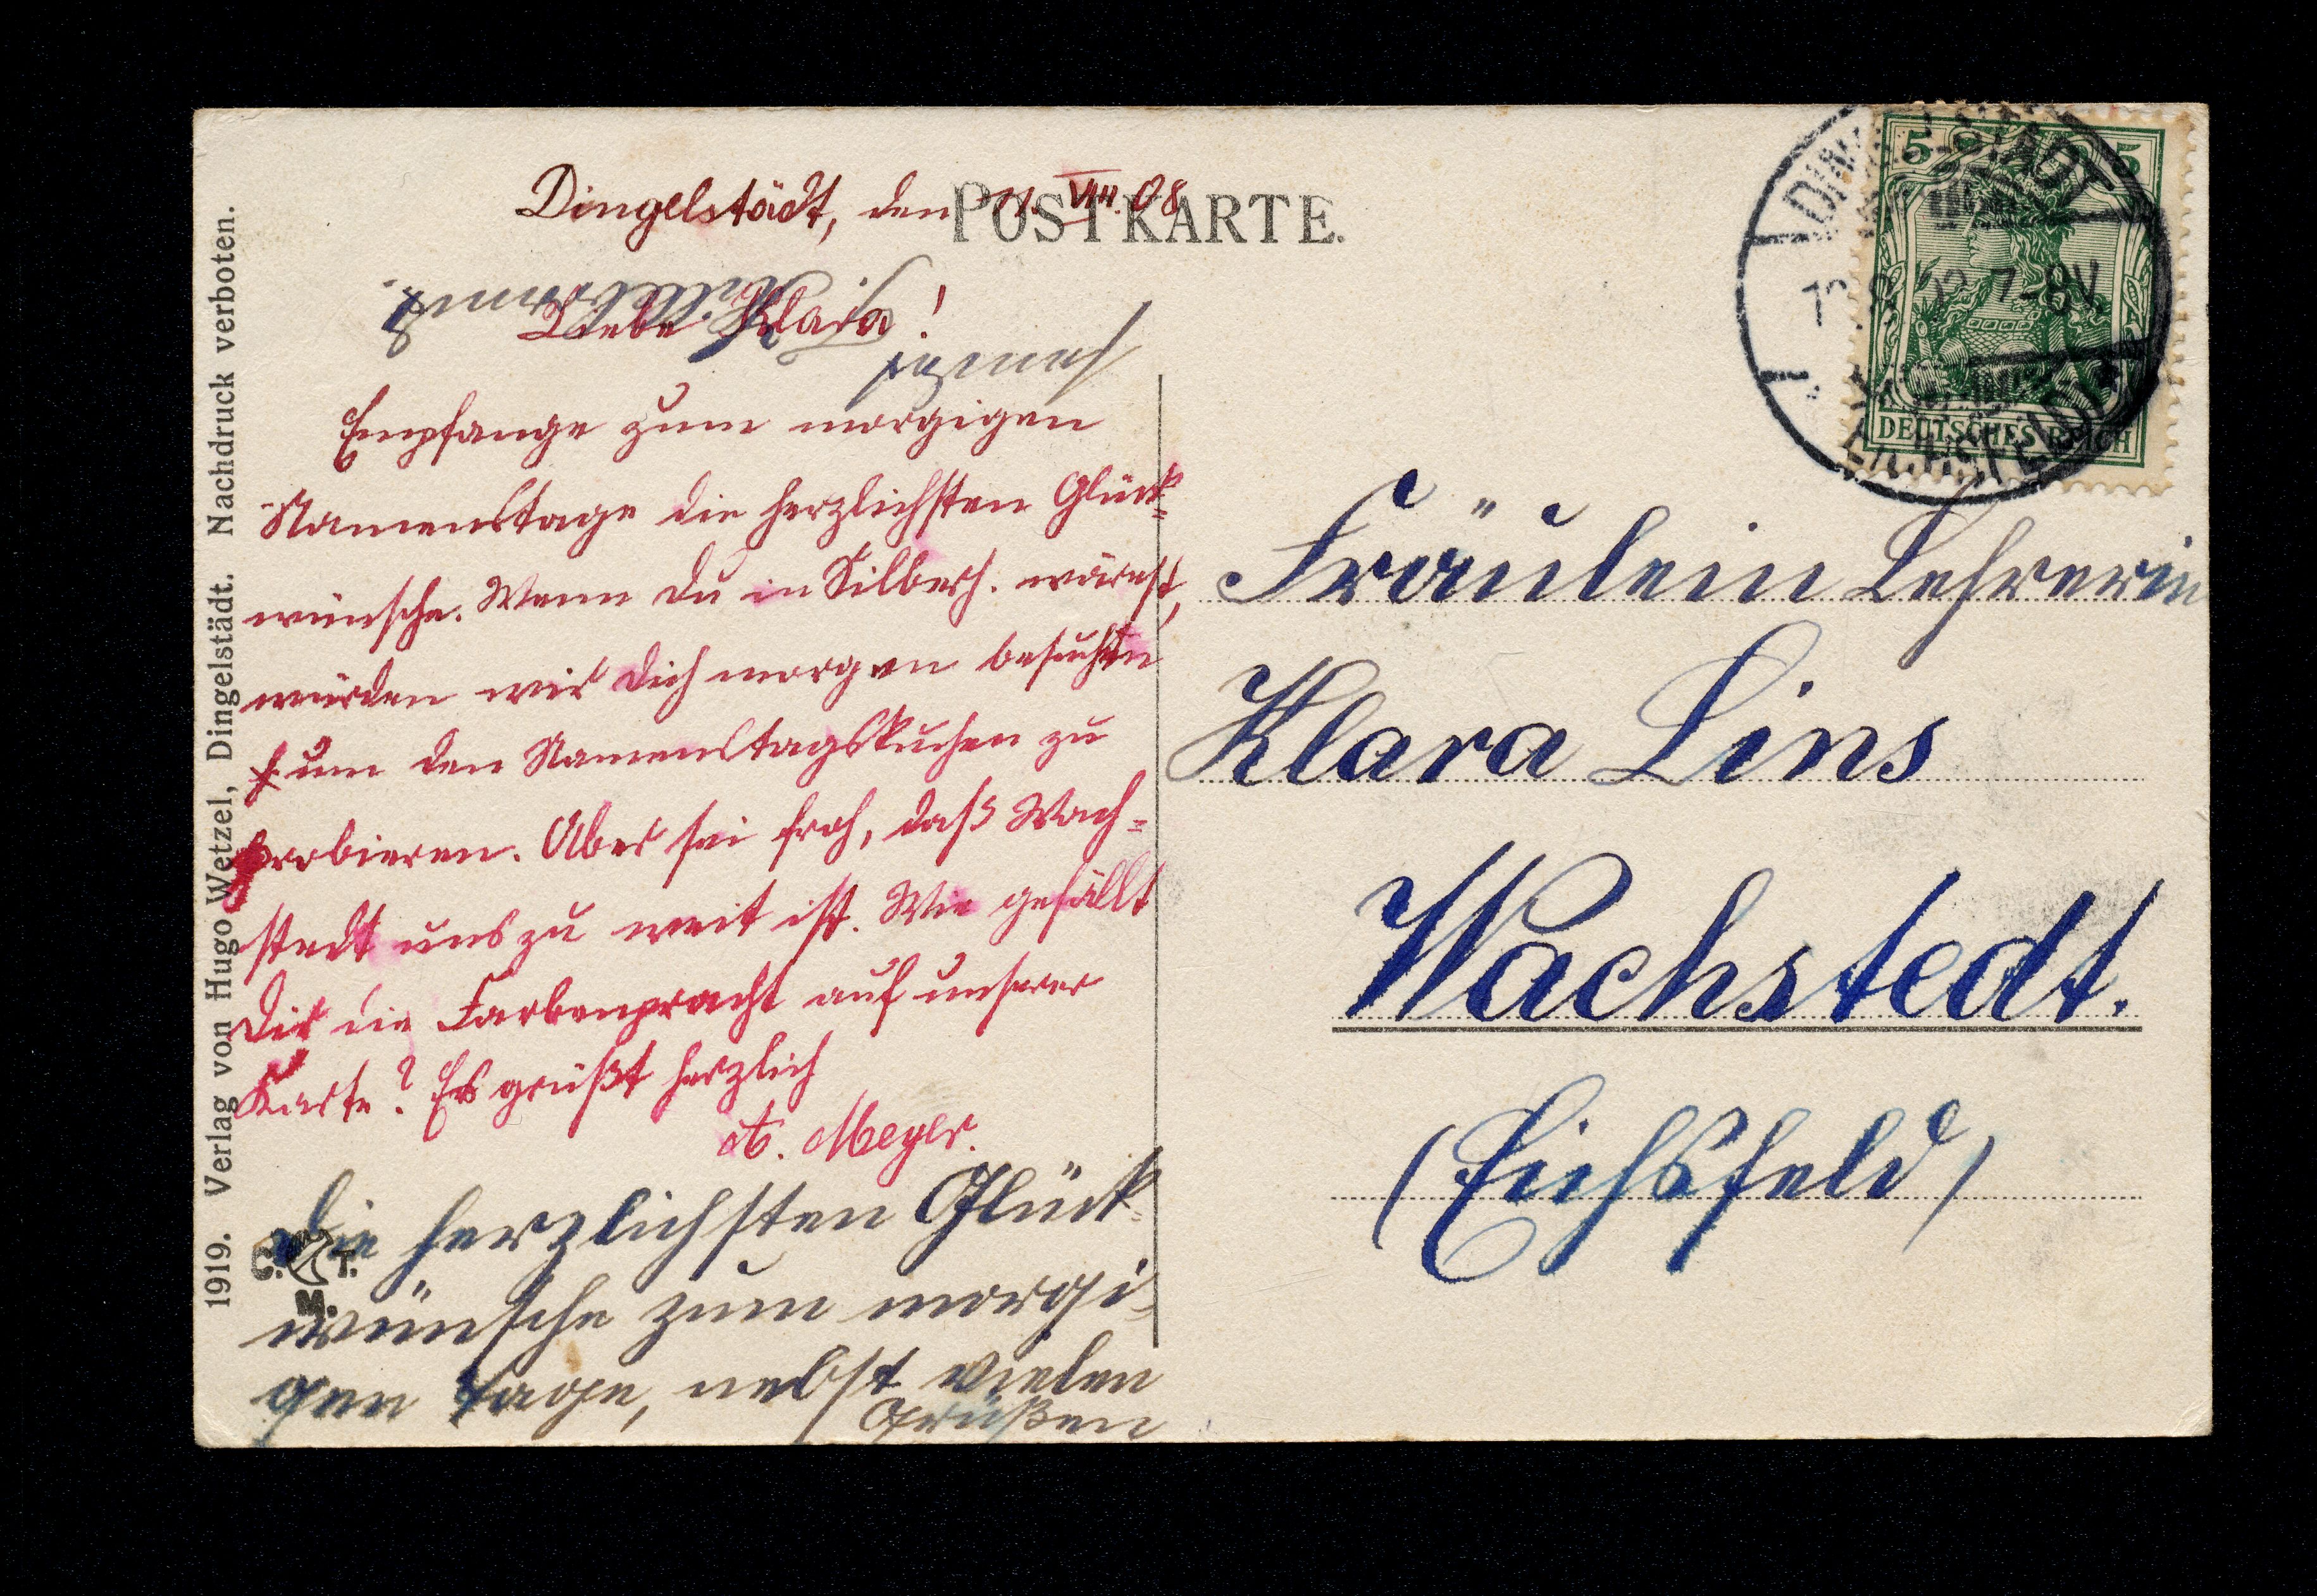 Dingelstädt, den 11. VIII. 08
POSTKARTE.
Liebe Klara!
Empfange zum morgigen
Namenstage die herzlichsten Glück=
wünsche. Wenn Du in Silberh. wärest,
würden wir Dich morgen besuchen
um den Namenstagskuchen zu
probieren. Aber sei froh, daß Wach=
stedt uns zu weit ist. Wie gefällt
Dir die Farbenpracht auf unserer
Karte? Es grüßt herzlich
A. Meyer.
Die herzlichsten Glück=
wünsche zum morgi=
gen Tage, nebst vielen
Grüßen
sendet
Fräulein Lehrerin
Klara Lins
Wachstedt.
(Eichsfeld)
5 5
DEUTSCHES REICH
7-8V
1919. Verlag von Hugo Wetzel, Dingelstädt. Nachdruck verboten.
C. T.
M.